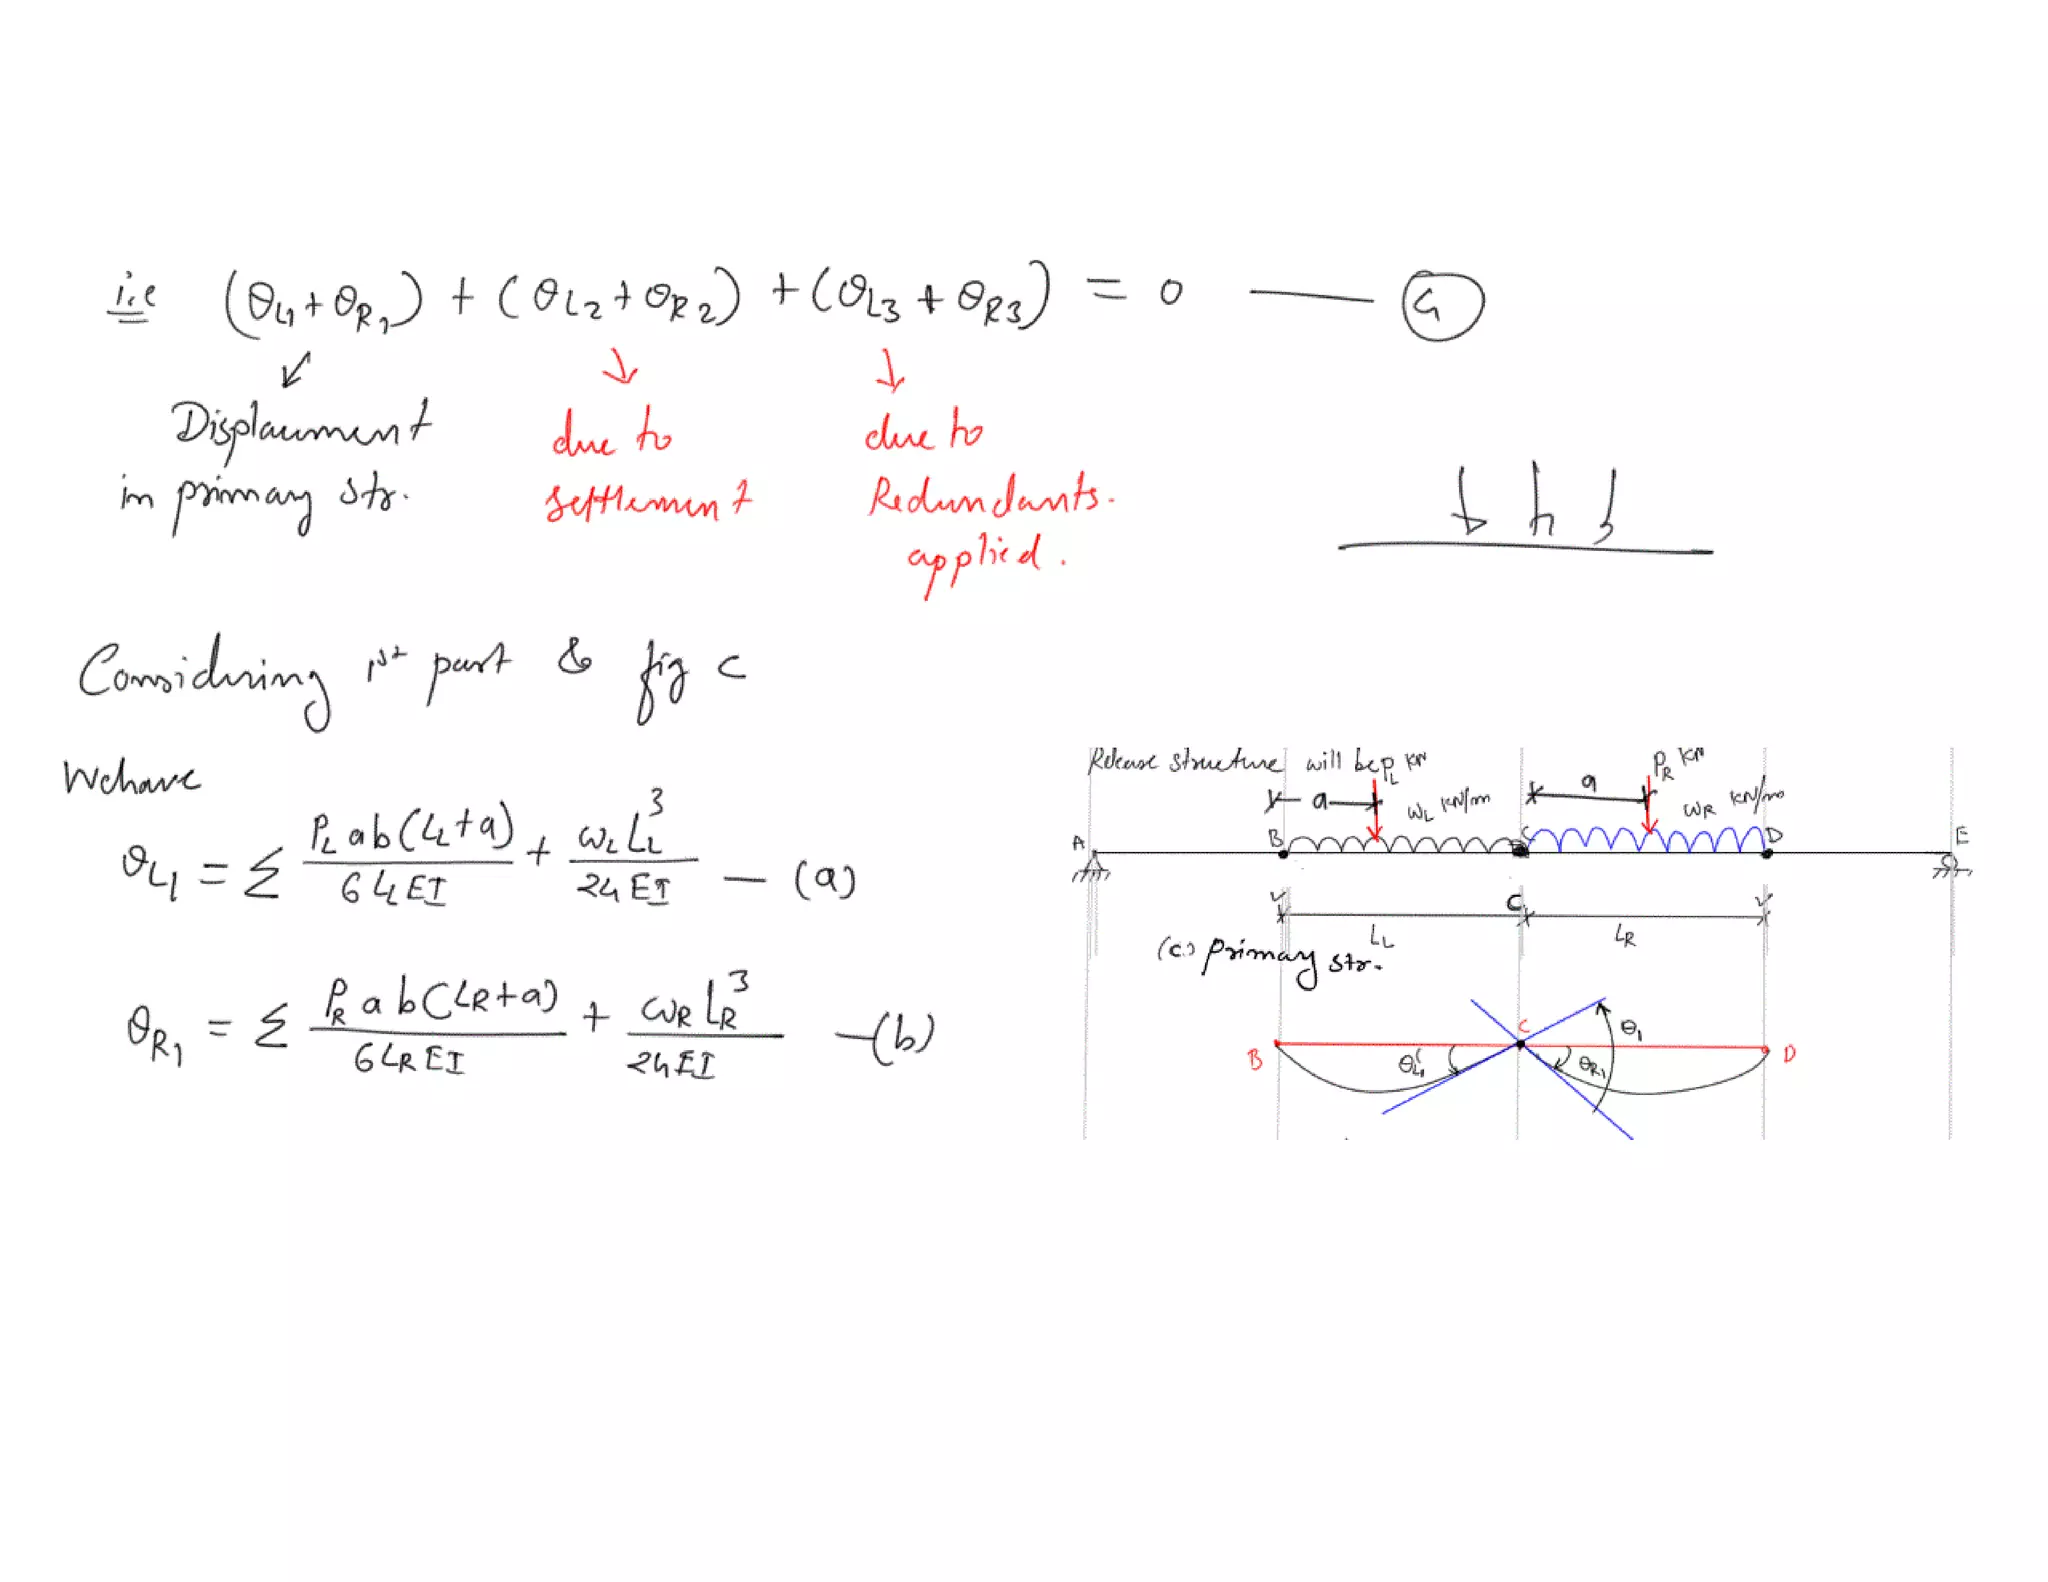 i.e (θL1+θR1) + (θL2+θR2) + (θL3+θR3) = 0 — 4
Displacement in primary str.
due to settlement
due to Redundants. applied.
Considering 1st part & fig c
We have
θL1 = Σ PL ab(LL+a) / 6LLEI + ωL LL³ / 24EI — (a)
θR1 = Σ PR ab(LR+a) / 6LREI + ωR LR³ / 24EI — (b)
Release structure will be PL KN
PR KN
a
ωL KN/m
a
ωR KN/m
A B C D E
C
LL LR
(c) primary str.
B C D
θL1 θR1 θ1